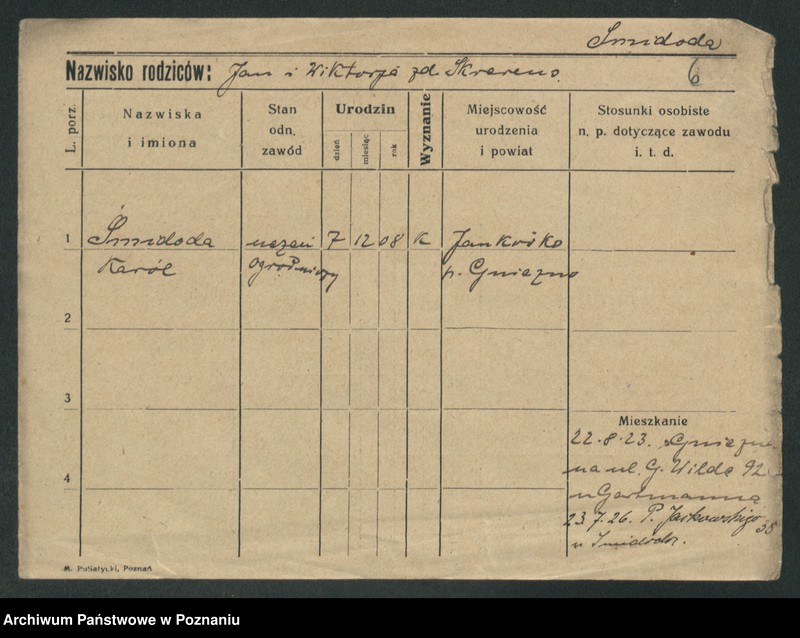 Śmidoda
Nazwisko rodziców: Jan i Wiktorja zd.
6
L. porz.
Nazwiska
i imiona
Stan
odn.
zawód
Urodzin
dzień
miesiąc
rok
Wyznanie
Miejscowość
urodzenia
i powiat
Stosunki osobiste
n. p. dotyczące zawodu
i. t. d.
1
Śmidoda
Karól
uczeń
ogrodniczy
7
12
08
k
p. Gniezno
2
3
4
Mieszkanie
22.8.23. Gniezna
na ul. G. Wilda 92
u Gartmanna
23.7.26. P. Jackowskiego 38
u Śmidody.
M. Putiatycki, Poznań
Archiwum Państwowe w Poznaniu